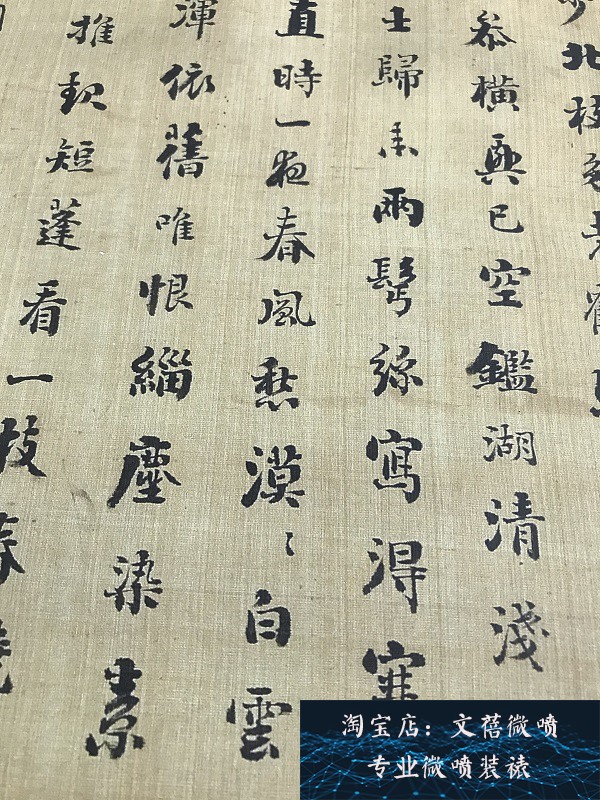 北枝
叅橫興已空鑑湖清淺
士歸來兩髩絲寫得寒
直時一夜春風愁漠〻白雲
渾依舊唯恨緇塵染素
推短蓬看一枝春
淘宝店：文蓓微喷
专业微喷装裱